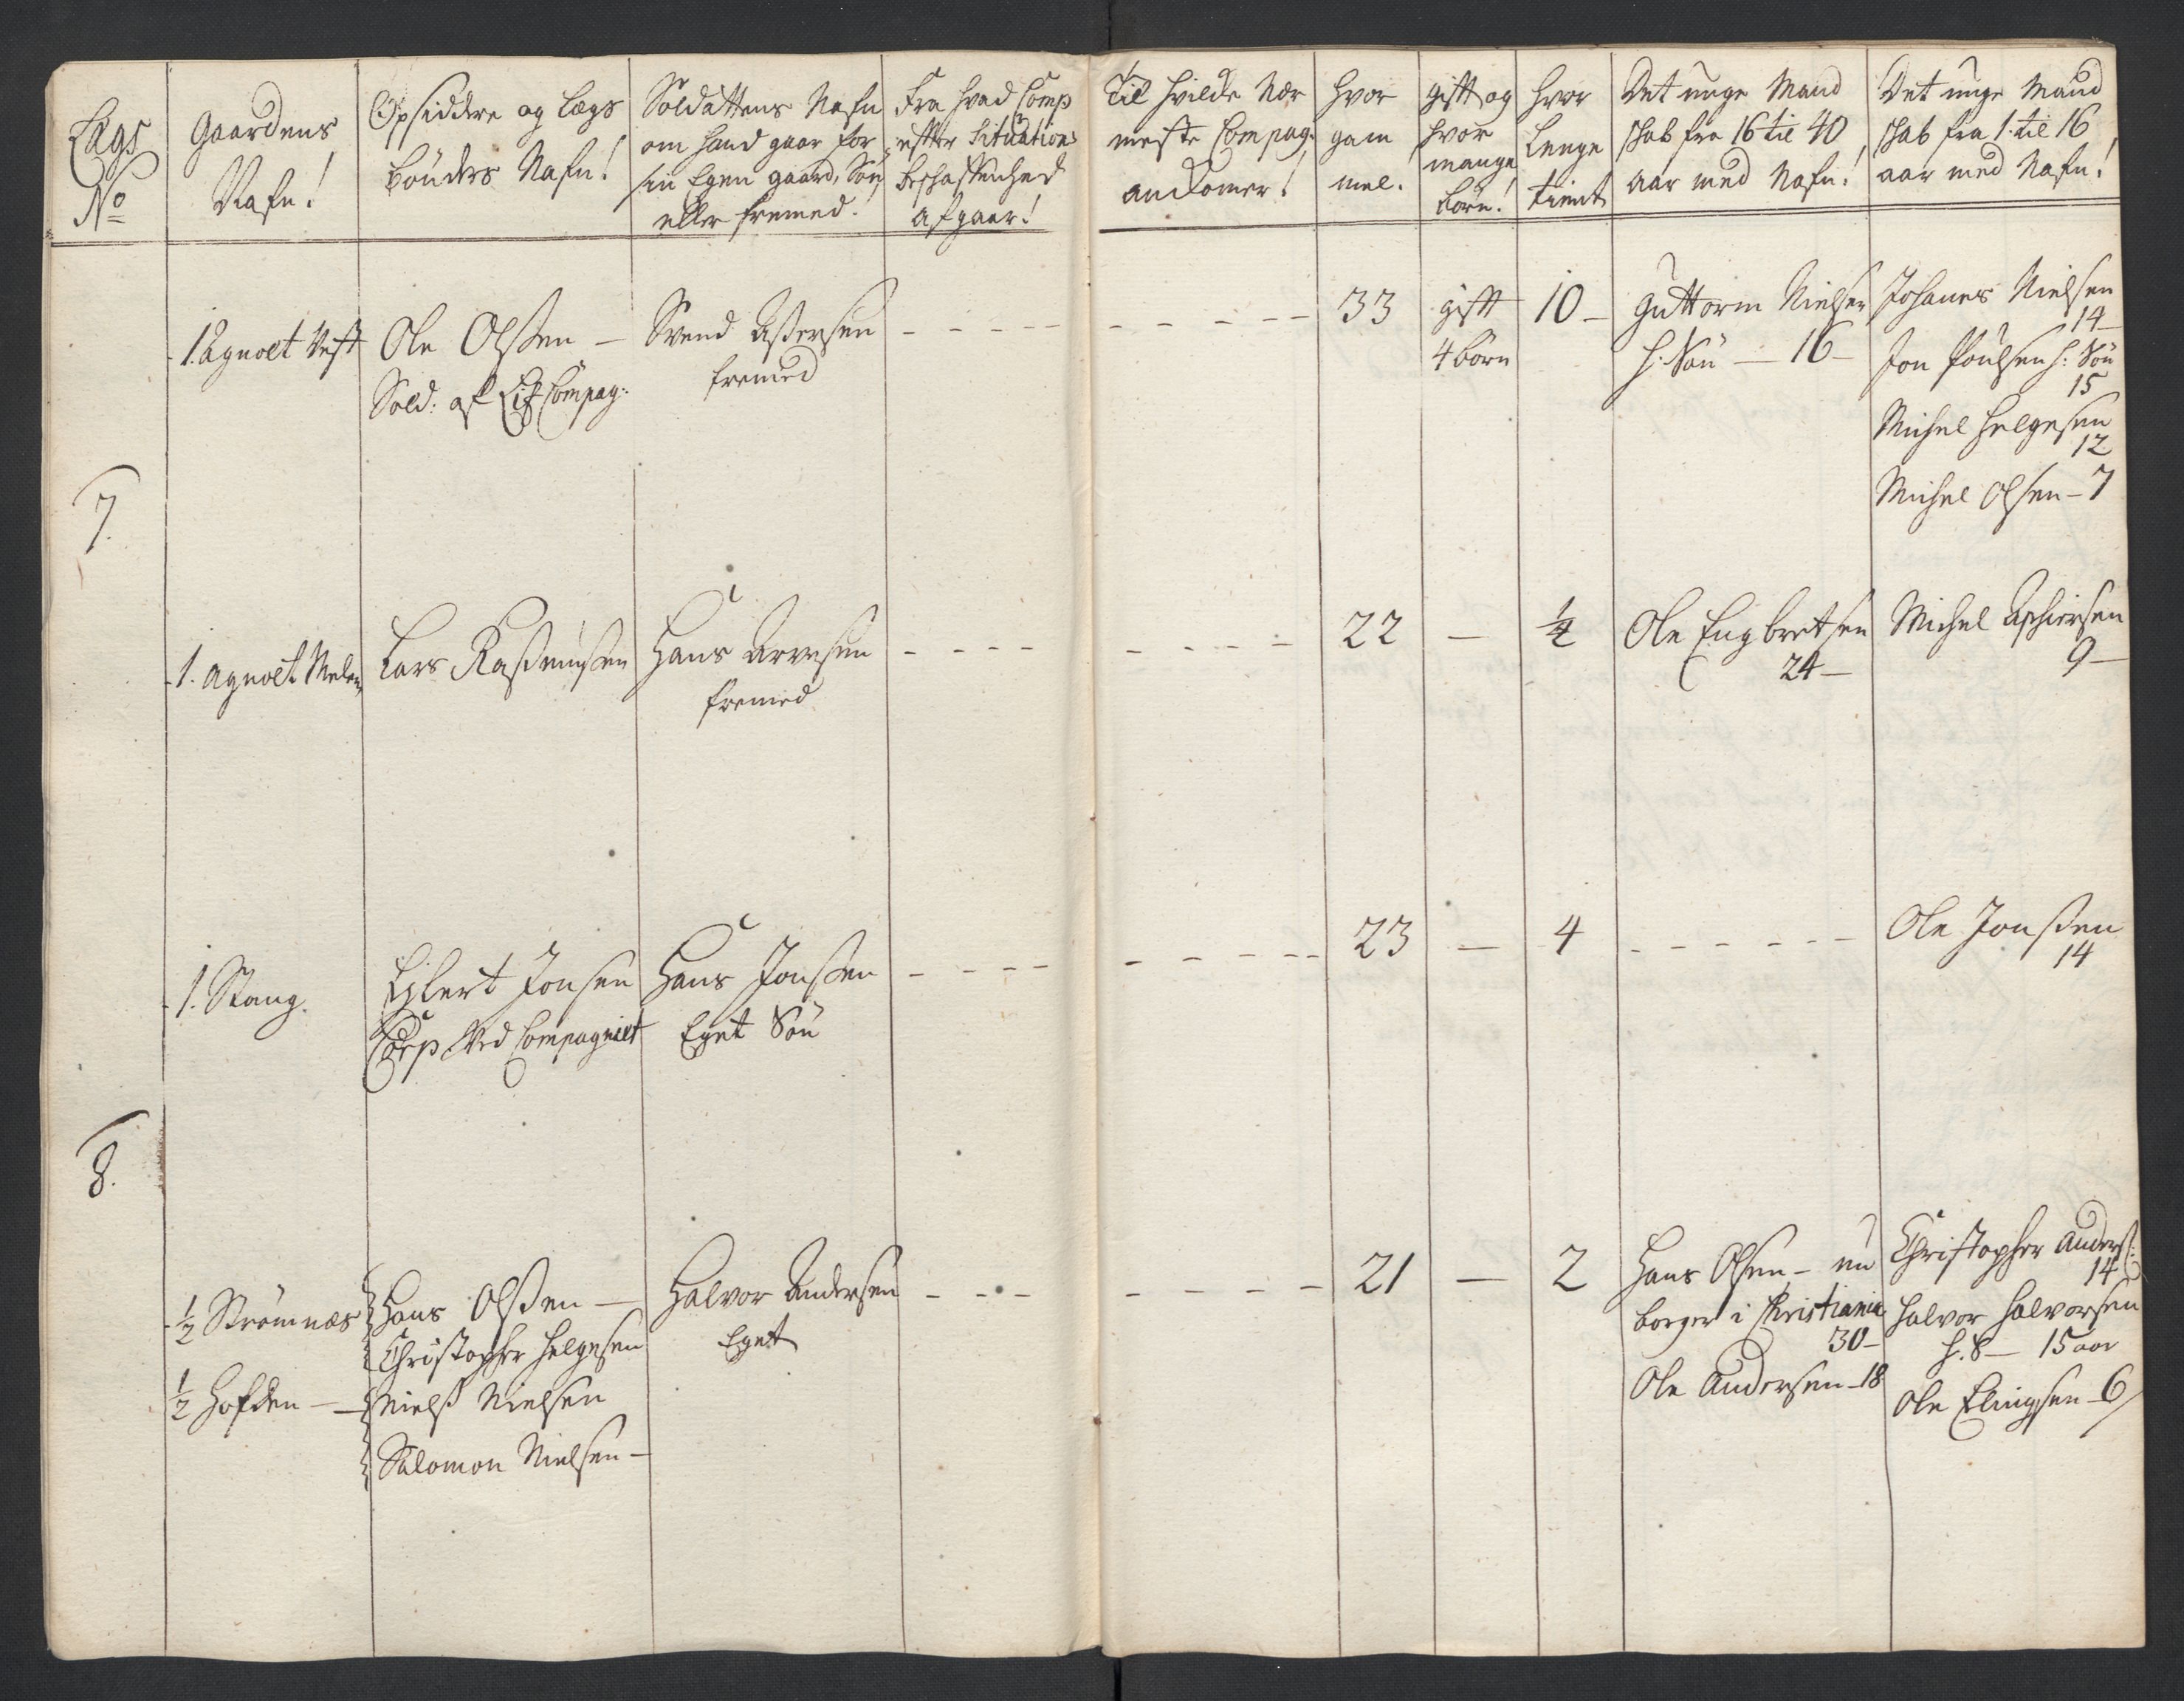 Lægs
No
Gaardens
Nafn!
Opsiddere og Lægs
bönders Nafn!
Soldattens Nafn
om hand gaar for
sin Egen gaard, Sön
eller fremed!
Fra hvad Comp
efter Situations
beschaffenhed
afgaar!
Til hvilde Nær
meste Compag:
ankomer!
hvor
gam
mel.
gift og
hvor
mange
börn!
hvor
Lenge
tient
Det unge Mand
skab fra 16 til 40
aar med Nafn!
Det unge Mand
skab fra 1. til 16
aar med Nafn!
7.
1. Agnolt Vest
Ole Olssen –
Sold: af Lif Compag:
Svend Assersen
fremed
33
gift
4 börn
10 –
Guttorm Nielsen
h. Sön – 16 –
Johanes Nielsen
14 –
Jon Poulsen h: Sön
15
Michel Helgesen
12
Michel Olsen – 7
1. Agnolt Melem
Lars Rasmussen
Hans Arvesen
fremed
22
–
½
Ole Engbretsen
24 –
Michel Aschiersen
9 –
8.
1. Stang.
Eilert Jonsen
Corp Ved Compagniet
Hans Jonssen
Eget Sön
23
–
4
Ole Jonssen
14
½ Strömnæs
½ Hofden –
Hans Olssen –
Christopher Helgesen
Niels Nielsen
Salomon Nielsen –
Halvor Andersen
Eget
21
–
2
Hans Olsen – nu
borger i Christiania
30 –
Ole Andersen – 18
Christopher Anders:
14
Halvor Halvorsen
h. S – 15 aar
Ole Elingsen – 6